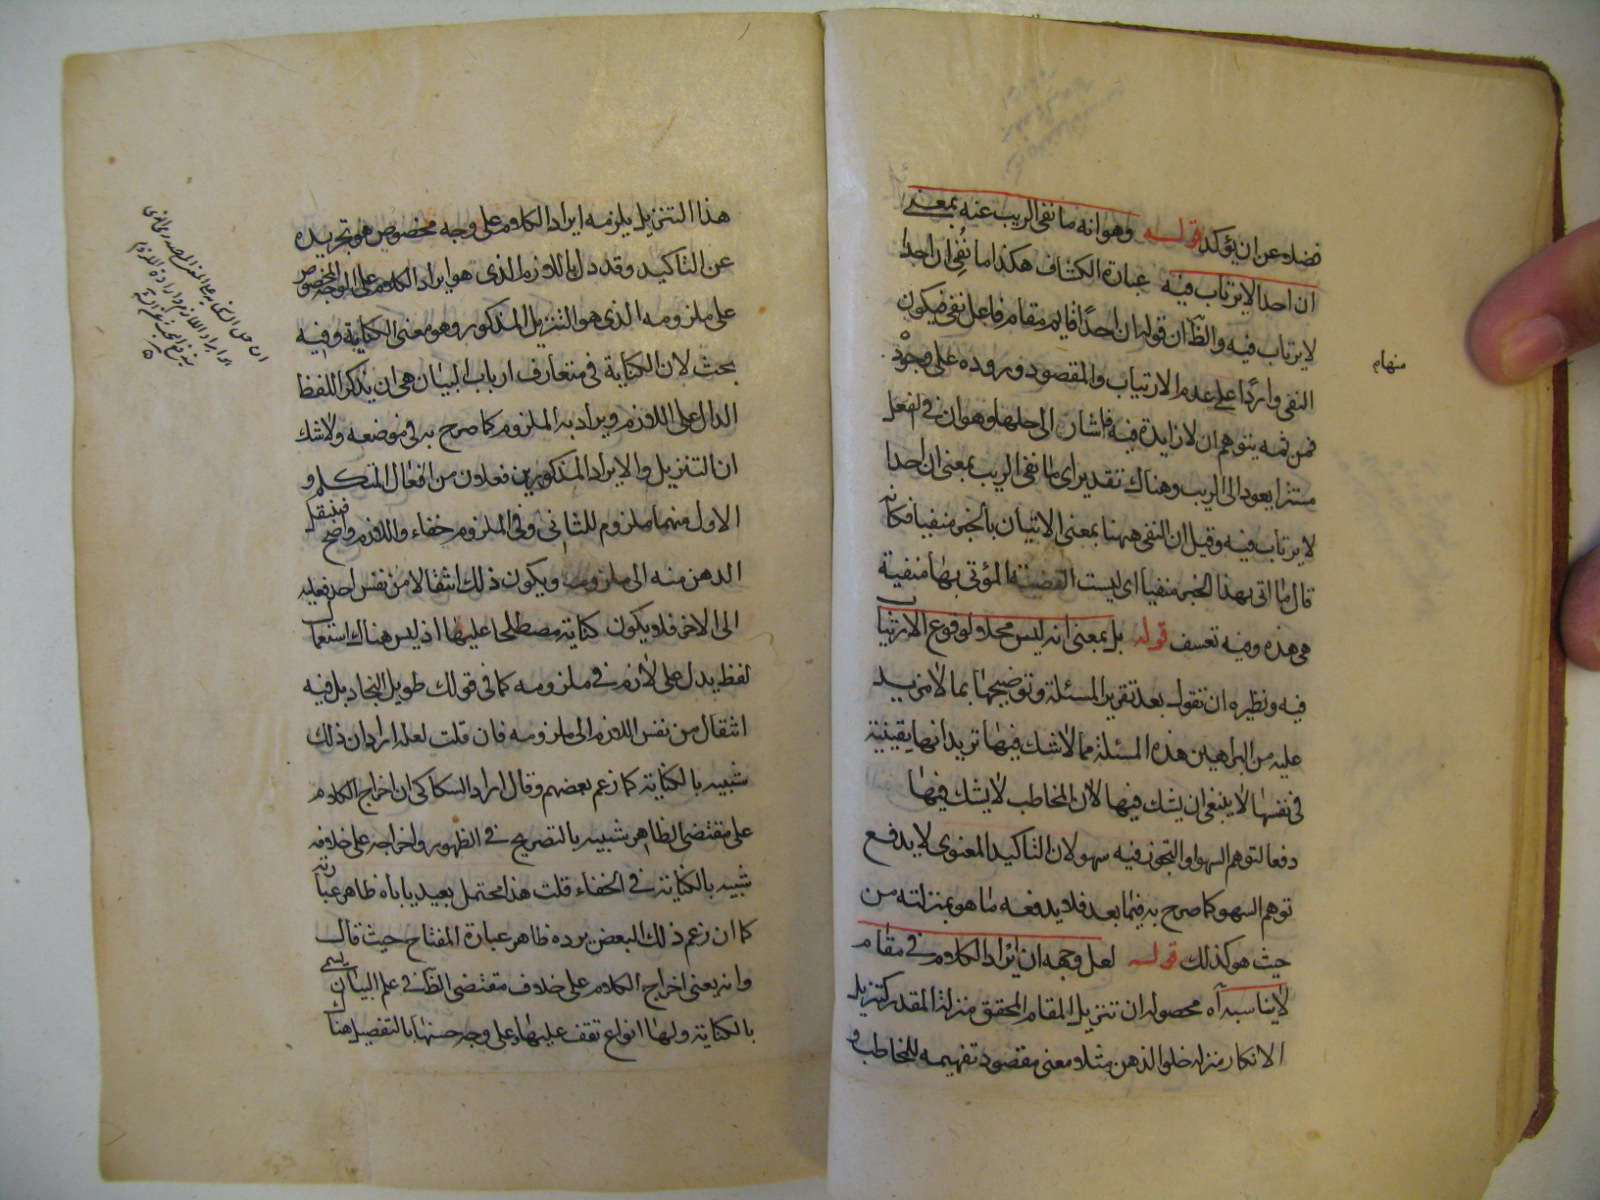 فضلا عن ان يؤكد قوله وهو انه ما نفى الريب عنه بمعنى
ان احدا لا يرتاب فيه عبارة الكشاف هكذا ما نُفِى ان احدا
لا يرتاب فيه والظ ان قوله ان احدًا قايم مقام فاعل نفى فيكون
النفى واردًا على عدم الارتياب والمقصود وروده على وجوده
فمن ثمه يتوهم ان لا زايدة فيه فاشار الى حلها وهو ان فى الفعل
مستترا يعود الى الريب وهناك تقدير اى ما نفى الريب بمعنى ان احدا
لا يرتاب فيه وقيل ان النفى ههنا بمعنى الاتيان بالخبر منفيا فكانه
قال ما اتى بهذا الخبر منفيا اى ليست القضية المؤتى بها منفية
هى هذه وفيه تعسف قوله بل بمعنى انه ليس محلا لوقوع الارتياب
فيه ونظيره ان تقول بعد تقرير المسئلة وتوضيحها بما لا مزيد
عليه من البراهين هذه المسئلة مما لا شك فيها تريد انها يقينية
فى نفسها لا ينبغى ان يشك فيها لا ان المخاطب لا يشك فيها
دفعا لتوهم السهو او التجوز فيه سهو لان التاكيد المعنوى لا يدفع
توهم السهو كما صرح به فيما بعد فلا يدفعه ما هو بمنزلته من
حيث هو كذلك قوله لعل وجهه ان ايراد الكلام فى مقام
لا يناسبه آه محصوله ان تنزيل المقام المحقق منزلة المقدر كتنزيل
الانكار منزلة خلو الذهن مثلا معنى مقصود تفهيمه للمخاطب و
هذا التنزيل يلزمه ايراد الكلام على وجه مخصوص هو تجريده
عن التاكيد وقد دل باللازم الذى هو ايراد الكلام على الوجه المخصوص
على ملزومه الذى هو التنزيل المذكور وهو معنى الكناية وفيه
بحث لان الكناية فى متعارف ارباب البيان هى ان يذكر اللفظ
الدال على اللازم ويراد به الملزوم كما صرح به فى موضعه ولا شك
ان التنزيل والايراد المذكورين فعلان من افعال المتكلم و
الاول منهما ملزوم للثانى وفى الملزوم خفاء واللازم واضح فينتقل
الذهن منه الى ملزومه ويكون ذلك انتقالا من نفس احد فعليه
الى الاخر فلا يكون كناية مصطلحا عليها اذ ليس هناك استعمال
لفظ يدل على لازم فى ملزومه كما فى قولك طويل النجاد بل فيه
انتقال من نفس اللازم الى ملزومه فان قلت لعله اراد ان ذلك
شبيه بالكناية كما زعم بعضهم وقال اراد السكاكى ان اخراج الكلام
على مقتضى الظاهر شبيه بالتصريح فى الظهور واخراجه على خلافه
شبيه بالكناية فى الخفاء قلت هذا محتمل بعيد ياباه ظاهر عبارته
كما ان زعم ذلك البعض يرده ظاهر عبارة المفتاح حيث قال
وانه يعنى اخراج الكلام على خلاف مقتضى الظ فى علم البيان يسمى
بالكناية ولها انواع تقف عليها وعلى وجه حسنها بالتفصيل هناك